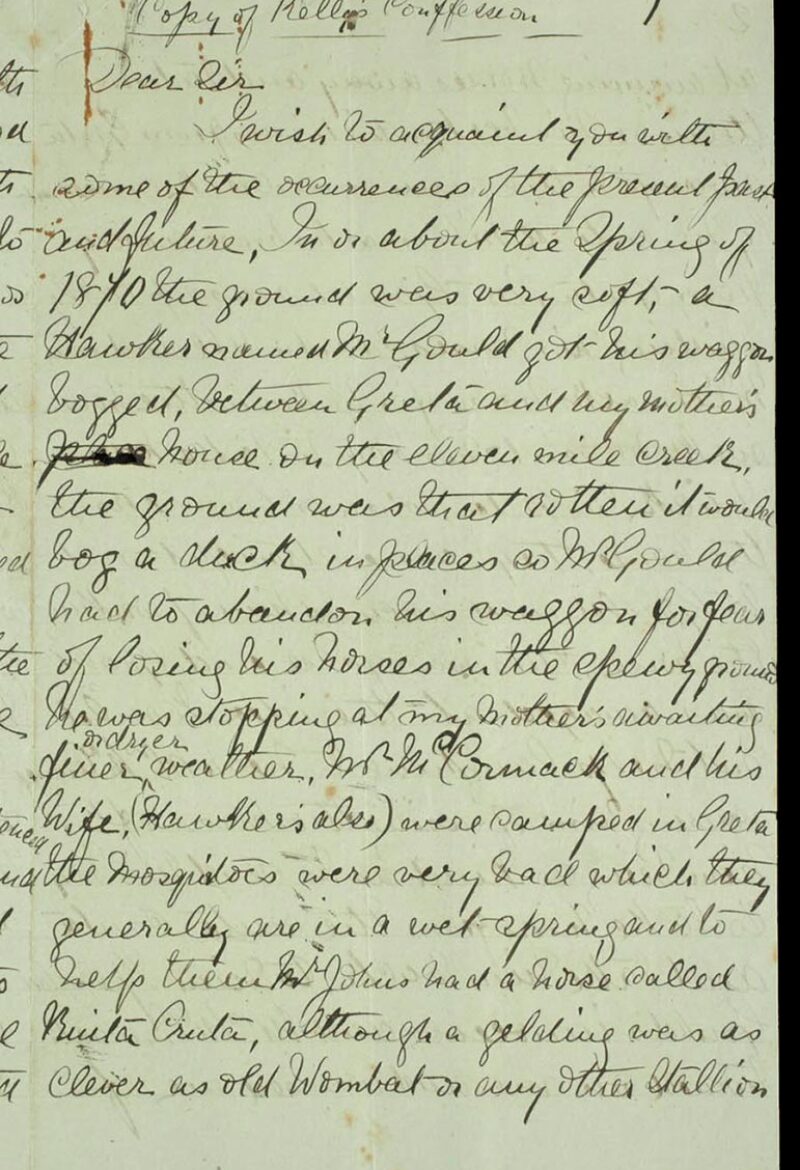 Copy of Kelly's Conffession
Dear Sir
I wish to acquaint you with
some of the occurrences of the present past
and future, In or about the Spring of
1870 the ground was very soft, a
Hawker named Mr Gould got his waggon
bogged, between Greta and my mother's
place house on the eleven mile creek,
the ground was that rotten it would
bog a duck in places so Mr Gould
had to abandon his waggon for fear
of losing his horses in the spewy ground
he was stopping at my Mother's awaiting
or dryer
finer weather, Mr McCormack and his
Wife, (Hawkers also) were camped in Greta
the Mosquitoes were very bad which they
generally are in a wet spring and to
help them Mr Johns had a horse called
Ruita Cruta, although a gelding was as
clever as old Wombat or any other Stallion